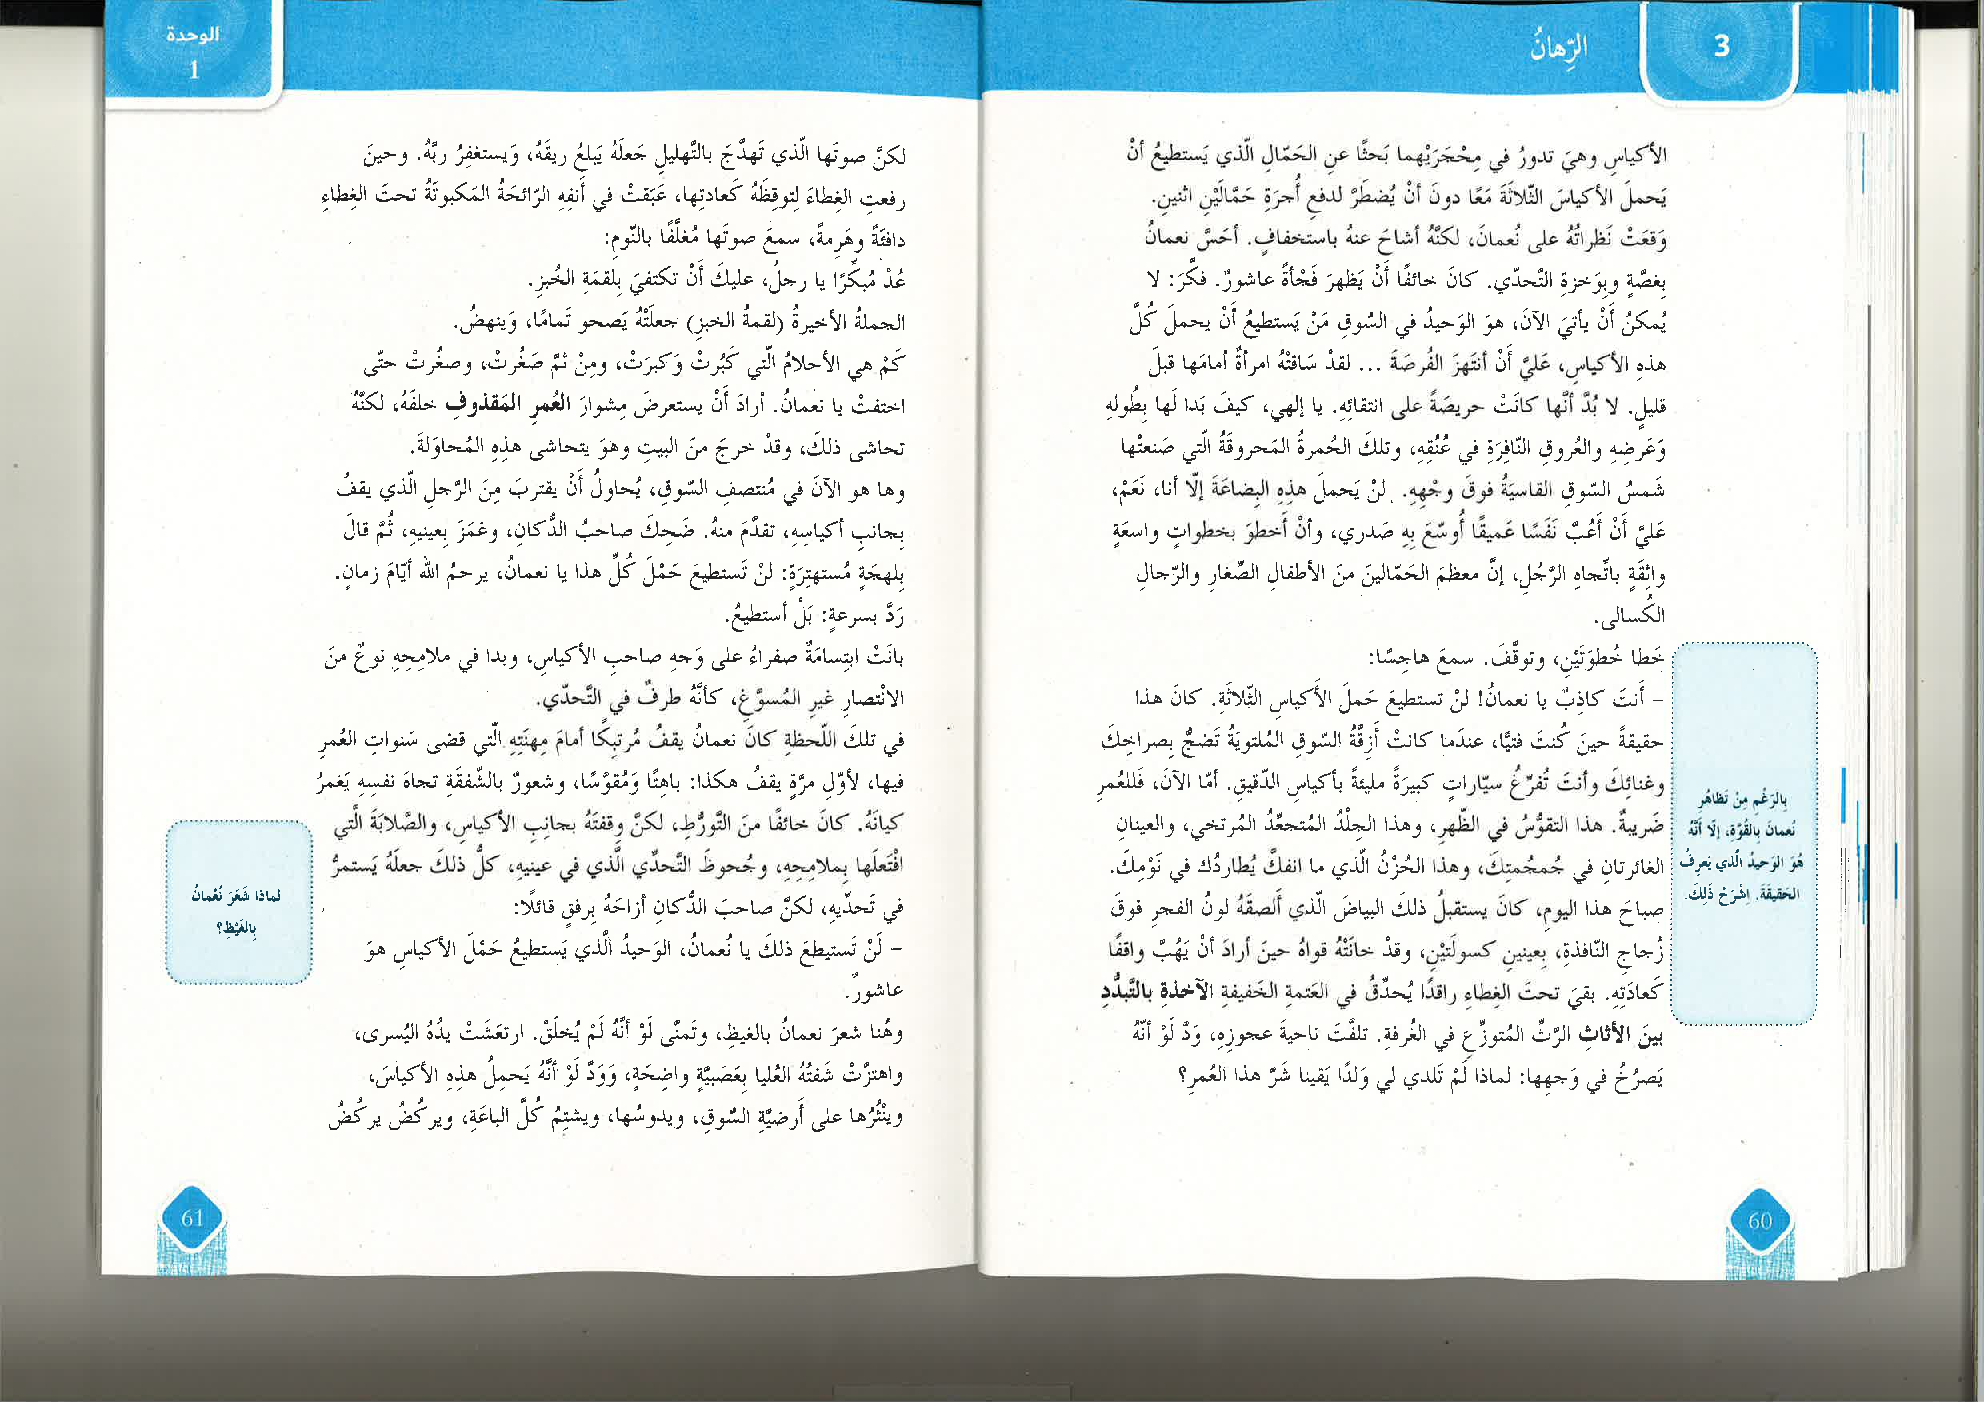 3
الرِّهانُ
الأكياسِ وهيَ تدورُ في مِحْجَرَيْهما بَحثًا عنِ الحَمّالِ الّذي يَستطيعُ أنْ
يَحملَ الأكياسَ الثّلاثَةَ مَعًا دونَ أنْ يُضطَرَّ لدفعِ أُجرَةِ حَمَّالَيْنِ اثنينِ.
وَقعَتْ نَظراتُهُ على نُعمانَ، لكنَّهُ أشاحَ عنهُ باستخفافٍ. أحَسَّ نعمانُ
بِغصَّةٍ وبِوَخزةِ التَّحدّي. كانَ خائفًا أَنْ يَظهرَ فَجْأةً عاشورٌ. فكَّرَ: لا
يُمكنُ أَنْ يأتيَ الآنَ، هوَ الوَحيدُ في السّوقِ مَنْ يَستطيعُ أنْ يحملَ كُلَّ
هذهِ الأكياسِ، عَليَّ أَنْ أنتَهزَ الفُرصَةَ ... لقدْ سَاقتْهُ امرأةٌ أمامَها قبلَ
قليلٍ. لا بُدَّ أنَّها كانَتْ حريصَةً على انتقائِهِ. يا إلهي، كيفَ بَدا لَها بِطُولهِ
وَعَرضِهِ والعُروقِ النّافِرَةِ في عُنُقِهِ، وتلكَ الحُمرةُ المَحروقَةُ الّتي صَنعتْها
شَمسُ السّوقِ القاسيَةُ فوقَ وجْهِهِ. لنْ يَحملَ هذِهِ البِضاعَةَ إلّا أنا، نَعَمْ،
عَليَّ أَنْ أَعُبَّ نَفَسًا عَميقًا أُوسّعَ بِهِ صَدري، وأنْ أَخطوَ بخطواتٍ واسعَةٍ
واثِقَةٍ باتّجاهِ الرَّجُلِ، إنَّ معظمَ الحَمّالينَ منَ الأطفالِ الصِّغارِ والرّجالِ
الكُسالى.
خَطا خُطوَتَيْنِ، وتوقَّفَ. سمعَ هاجسًا:
– أَنتَ كاذِبٌ يا نعمانُ! لنْ تستطيعَ حَملَ الأَكياسِ الثّلاثَةِ. كانَ هذا
حقيقةً حينَ كُنتَ فتيًّا، عندَما كانتْ أزقّةُ السّوقِ المُلتويَةُ تَضجُّ بِصراخِكَ
وغنائِكَ وأنتَ تُفرّغُ سيّاراتٍ كبيرَةً مليئةً بأكياسِ الدّقيقِ. أمّا الآنَ، فَللعُمرِ
ضَريبةٌ. هذا التقوُّسُ في الظّهرِ، وهذا الجِلْدُ المُتجعِّدُ المُرتخي، والعينانِ
الغائرتانِ في جُمجُمتِكَ، وهذا الحُزْنُ الّذي ما انفكَّ يُطاردُك في نَوْمِكَ.
صباحَ هذا اليومِ، كانَ يستقبلُ ذلكَ البياضَ الّذي أَلصقَهُ لونُ الفجرِ فوقَ
زُجاجِ النّافذةِ، بِعينينِ كسولَتيْنِ، وقدْ خانَتْهُ قواهُ حينَ أرادَ أنْ يَهُبَّ واقفًا
كَعادَتِهِ. بقيَ تحتَ الغِطاءِ راقدًا يُحدِّقُ في العَتمةِ الخَفيفةِ الآخذةِ بالتَّبدُّدِ
بينَ الأثاثِ الرَّثِّ المُتوزِّعِ في الغُرفةِ. تلفَّتَ ناحيةَ عجوزِهِ، وَدَّ لَوْ أنّهُ
يَصرُخُ في وَجهِها: لماذا لَمْ تَلدي لي وَلدًا يَقينا شَرَّ هذا العُمرِ؟
بالرَّغْمِ مِنْ تَظاهُرِ
نُعمانَ بِالقُوَّةِ، إلّا أنَّهُ
هُوَ الوَحيدُ الَّذي يَعرِفُ
الحَقيقَةَ. اِشْرَحْ ذَلِكَ.
60
الوحدة
1
لكنَّ صوتَها الّذي تَهدَّجَ بالتَّهليلِ جَعلَهُ يَبلعُ ريقَهُ، وَيستغفِرُ ربَّهُ. وحينَ
رفعتِ الغِطاءَ لِتوقِظَهُ كَعادتِها، عَبَقتْ في أَنفِهِ الرّائحَةُ المَكبوتَةُ تحتَ الغِطاءِ
دافئَةً وهَرِمةً، سمعَ صوتَها مُغلَّفًا بالنّومِ:
عُدْ مُبكِّرًا يا رجلُ، عليكَ أَنْ تكتفيَ بِلقمَةِ الخُبزِ.
الجملةُ الأخيرةُ (لقمةُ الخبزِ) جعلَتْهُ يَصحو تَمامًا، وَينهضُ.
كَمْ هي الأحلامُ الّتي كَبُرتْ وَكبرَتْ، ومِنْ ثمَّ صَغُرتْ، وصغُرتْ حتّى
اختفتْ يا نعمانُ. أرادَ أَنْ يستعرضَ مِشوارَ العُمرِ المَقذوفِ خلفَهُ، لكنَّهُ
تحاشى ذلكَ، وقدْ خرجَ منَ البيتِ وهوَ يتحاشى هذِهِ المُحاوَلةَ.
وها هو الآنَ في مُنتصفِ السّوقِ، يُحاولُ أَنْ يقتربَ مِنَ الرَّجلِ الّذي يقفُ
بِجانبِ أكياسِهِ، تقدَّمَ منهُ. ضَحِكَ صاحبُ الدُّكانِ، وغمَزَ بِعينيهِ، ثُمَّ قالَ
بِلهجَةٍ مُستهتِرَةٍ: لنْ تَستطيعَ حَمْلَ كُلِّ هذا يا نعمانُ، يرحمُ الله أيّامَ زمانٍ.
رَدَّ بسرعةٍ: بَلْ أستطيعُ.
بانَتْ ابتِسامَةٌ صفراءُ على وَجهِ صاحبِ الأكياسِ، وبدا في ملامِحِهِ نوعٌ منَ
الانْتصارِ غيرِ المُسوَّغِ، كأنَّهُ طرفٌ في التَّحدّي.
في تلكَ اللّحظةِ كانَ نعمانُ يقفُ مُرتبِكًا أمامَ مِهنَتِهِ الّتي قضى سَنواتِ العُمرِ
فيها، لأوّلِ مرَّةٍ يقفُ هكذا: باهِتًا وَمُقوَّسًا، وشعورٌ بالشّفقَةِ تجاهَ نفسِهِ يَغمرُ
كيانَهُ. كانَ خائفًا منَ التّورُّطِ، لكنَّ وقفتَهُ بجانِبِ الأكياسِ، والصَّلابَةَ الَّتي
افْتعلَها بِملامِحِهِ، وجُحوظَ التَّحدِّي الَّذي في عينيهِ، كلُّ ذلكَ جعلَهُ يَستمرُّ
في تَحدّيهِ، لكنَّ صاحبَ الدُّكانِ أزاحَهُ بِرفقٍ قائلًا:
– لَنْ تَستيطعَ ذلكَ يا نُعمانُ، الوَحيدُ الَّذي يَستطيعُ حَمْلَ الأكياسِ هوَ
عاشورٌ.
وهُنا شعرَ نعمانُ بالغيظِ، وتَمنّى لَوْ أنَّهُ لَمْ يُخلَقْ. ارتعَشَتْ يدُهُ اليُسرى،
واهتزَّتْ شَفتُهُ العُليا بِعَصَبيَّةٍ واضِحَةٍ، وَوَدَّ لَوْ أنَّهُ يَحمِلُ هذِهِ الأكياسَ،
وينْثُرُها على أَرضيَّةِ السّوقِ، ويدوسُها، ويشتِمُ كُلَّ الباعَةِ، ويركُضُ يركُضُ
لماذا شَعَرَ نُعْمانُ
بِالغَيْظِ؟
61